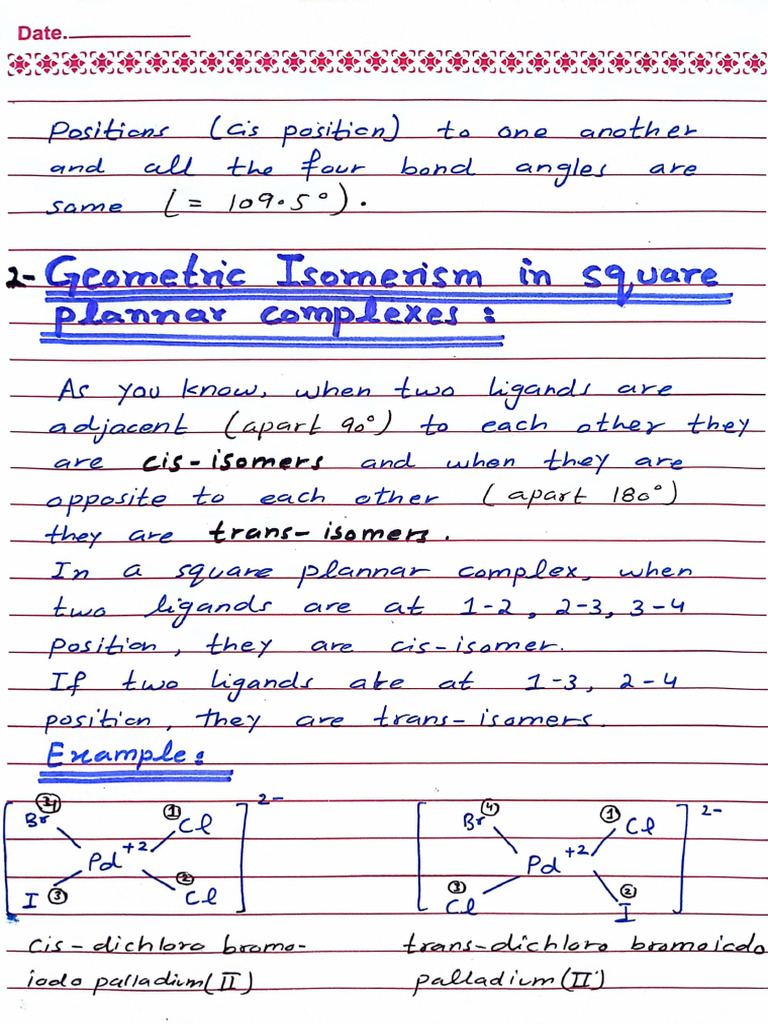 Date.
Positions (cis position) to one another
and all the four bond angles are
same (= 109.5°).
2- Geometric Isomerism in square
plannar complexes:
As you know, when two ligands are
adjacent (apart 90°) to each other they
are cis-isomers and when they are
opposite to each other (apart 180°)
they are trans-isomers.
In a square plannar complex, when
two ligands are at 1-2, 2-3, 3-4
position, they are cis-isomer.
If two ligands are at 1-3, 2-4
position, they are trans-isomers.
Example:
2-
④ ①
Br Cl
Pd +2
②
I ③ Cl
cis-dichloro bromo-
iodo palladium(II)
2-
④ ①
Br Cl
Pd +2
③ ②
Cl I
trans-dichloro bromoiodo
palladium(II)